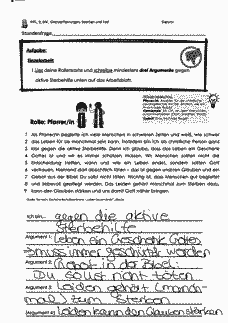 Stundenfrage:
Aufgabe:
Einzelarbeit
1. Lies deine Rollenkarte und schreibe mindestens drei Argumente gegen
aktive Sterbehilfe unten auf das Arbeitsblatt.
Rolle: Pfarrer/in
1 Als Pfarrer/in begleite ich viele Menschen in schweren Zeiten und weiß, wie schwer
2 das Leben für sie manchmal sein kann. Trotzdem bin ich als christliche Person ganz
3 klar gegen die aktive Sterbehilfe. Denn ich glaube, dass das Leben ein Geschenk
4 Gottes ist und wir es immer schützen müssen. Wir Menschen sollten nicht die
5 Entscheidung treffen, wann und wie ein Leben endet, sondern sollten Gott
6 vertrauen. Niemand darf absichtlich töten – das ist gegen unseren Glauben und ein
7 Gebot aus der Bibel: Du sollst nicht töten. Wichtig ist, dass Menschen gut begleitet
8 und liebevoll gepflegt werden. Das Leiden gehört manchmal zum Sterben dazu,
9 kann den Glauben stärken und uns damit Gott näher bringen.
Ich bin gegen die aktive
Sterbehilfe
Argument 1: Leben ein Geschenk Gottes
muss immer geschützt werden
Argument 2: Gebot in der Bibel:
Du sollst nicht töten
Argument 3: Leiden gehört (manch-
mal) zum Sterben
Argument 4: Leiden kann den Glauben stärken